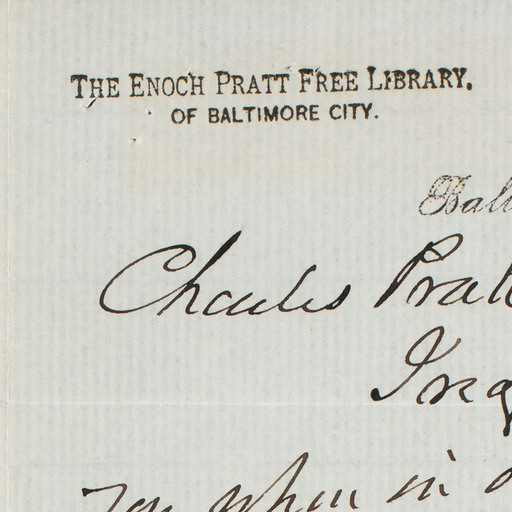 THE ENOCH PRATT FREE LIBRARY,
OF BALTIMORE CITY.
Balt
Charles Pratt
when in